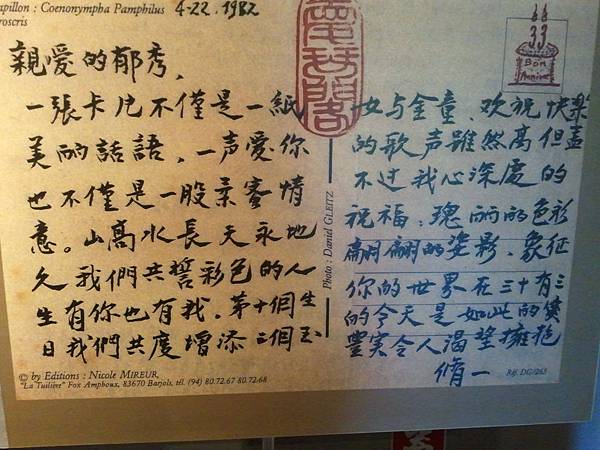 apillon : Coenonympha Pamphilus
4-22.1982
roscris
親爱的郁秀，
一張卡片不僅是一紙
美丽話語，一声愛你
也不僅是一股柔蜜情
意。山高水長天永地
久我們共誓彩色的人
生有你也有我。第十個生
日我們共度增添二個玉
33
Bon
Annive
女与金童、欢祝快樂
的歌声雖然高但盖
不过我心深處的
祝福、瑰丽的色彩
翩翩的姿影、象征
你的世界在三十有三
的今天是如此的
豐实令人渴望擁抱
脩一
Photo : Daniel GLEITZ
© by Editions : Nicole MIREUR,
"La Tuilière" Fox Amphoux, 83670 Barjols, tél. (94) 80.72.67 80.72.68
Réf. DG/263